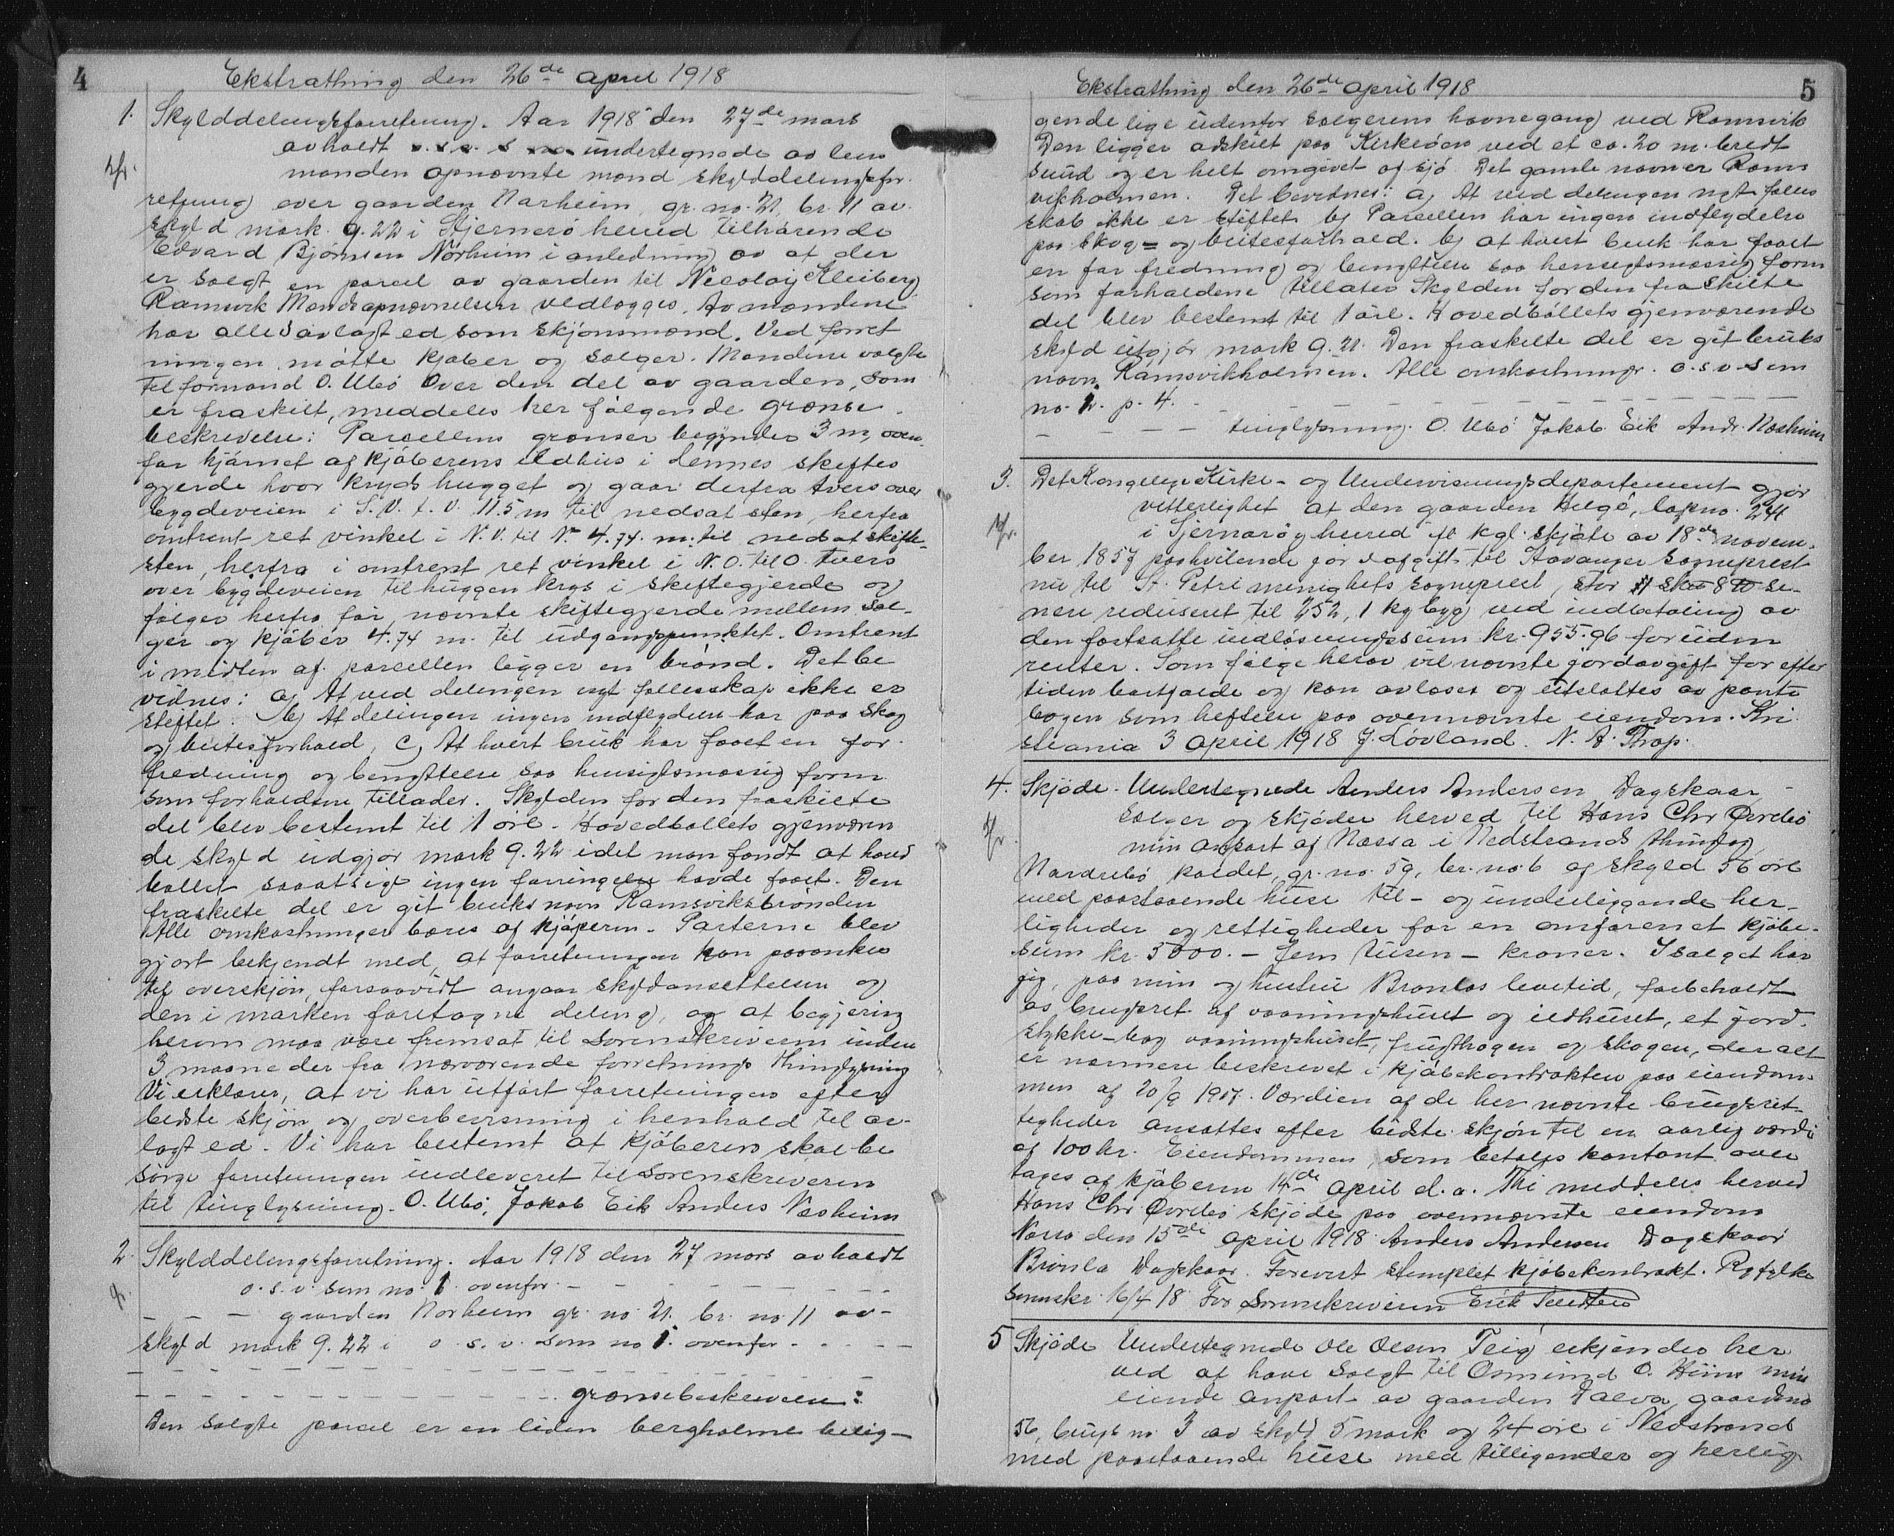 4
Ekstrathing den 26de april 1918
1. Skylddelingsforretning. Aar 1918 den 27de mars
avholdt undertegnede av lens
manden opnævnte mænd skylddelingsfor
retning over gaarden Narheim, gr. no. 21, br. 11 av
skyld mark 9.22 i Sjernerø herred tilhørende
Edvard Bjørnsen Nørheim i anledning av at der
er solgt en parcel av gaarden til Nicolay Kleiberg
Ramsvik Mandsopnævnelsen vedlægges. Av mændene
har alle avlagt ed som skjønsmænd. Ved forret
ningen møtte kjøber og sælger. Mændene valgte
til formand O. Ubø Over den del av gaarden, som
er fraskilt, meddeles her følgende grænse
beskrivelse: Parcellens grænser begynder 3 m, oven
for hjørnet af kjøberens ildhus i dennes skiftes
gjerde hvor kryds hugget og gaar derfra tvers over
bygdeveien i S.V. t. V. 11.5 m til nedsat sten, herfra
omtrent ret vinkel i N.V. til N. 4.74 m. til nedsat skifte-
sten, herfra i omtrent ret vinkel i N.O. til O. tvers
over bygdeveien til huggen krys i skiftegjerde og
følger herfra før nævnte skiftegjerde mellem sæl-
ger og kjøber 4.74 m. til udgangspunktet. Omtrent
i midten af parcellen ligger en brønd. Det be
vidnes: a) At ved delingen nyt fællesskap ikke er
stiftet. b) At delingen ingen indflydelse har paa skog
og beitesforhold, c) At hvert bruk har faaet en for
fredning og benyttelse saa hensigtsmæssig form
som forholdene tillader. Skylden for den fraskilte
del blev bestemt til 1 øre. Hovedbøllets gjenværen
de skyld udgjør mark 9.22 idet man fandt at hoved
bøllet saaatsige ingen forringelse havde faaet. Den
fraskilte del er git bruksnavn Ramsviksbrønden
Alle omkostninger bæres af kjøperen. Parterne blev
gjort bekjendt med, at forretningen kan paaankes
til overskjøn, forsaavidt angaar skyldansettelsen og
den i marken foretagne deling, og at begjæring
herom maa være fremsat til Sorenskriveren inden
3 maaneder fra nærværende forretnings thinglysning
Vi erklærer, at vi har utført forretningen efter
bedste skjøn og overbevisning i henhold til av-
lagt ed. Vi har bestemt at kjøberen skal be
sørge forretningen indleveret til sorenskriveren
til tinglysning. O. Ubø, Jakob Eik Anders Næsheim
2. Skylddelingsforretning. Aar 1918 den 27 mars avholdt
o.s.v. som no 1. ovenfor - - - - -
- - - gaarden Norheim gr. no 21. br. no 11 av-
skyld mark 9.22 i o.s.v. som no 1. ovenfor - - - -
- - - - - - - - - - - -
- - - - - - grænsebeskrivelse:
Den solgte parcel er en liden bergholme belig-
5
Ekstrathing den 26de april 1918
gende lige udenfor sælgerens havnegang ved Ramsvik
Den ligger adskilt paa Kirkeøen ved et ca. 20 m. bredt
sund og er helt omgivet af sjø Det gamle navn er Rams
vikholmen. Det bevidnes: a) At ved delingen nyt fælles
skab ikke er stiftet b) Parcellen har ingen indflydelse
paa skog- og beitesforhold. c) at hvert bruk har faaet
en for fredning og benyttelse saa hensigtsmæssig form
som forholdene tillater Skylden for den fraskilte
del blev bestemt til 1 øre. Hovedbøllets gjenværende
skyld utgjør mark 9.21. Den fraskilte del er git bruks
navn Ramsvikholmen. Alle omkostninger o.s.v. som
no. 1. p. 4. - - - - - -
- - - - tinglysning. O. Ubø Jakob Eik Andr. Næsheim
3. Det Kongelige Kirke- og Undervisningsdepartement gjør
vitterlighet at den gaarden Helgø, løpeno. 241
i Sjernarøy herred ifl kgl. skjøte av 18de novem-
ber 1857 paahvilende jordafgift til Stavanger sogneprest
nu til St. Petri menigheds sogneprest, stor 8 se-
nere reduseret til 252,1 kg byg ved indbetaling av
den fastsatte indløsningssum kr. 955.96 foruden
renter. Som følge herav vil nævnte jordavgift for efter
tiden bortfalde og kan avlæses og utslettes av pante
bogen som heftelse paa ovennævnte eiendom. Kri
stiania 3 april 1918 J. Løvland. N. A. Thrap.
4. Skjøde. Undertegnede Anders Andersen Dagskaar
sælger og skjøder herved til Hans Chr Øvrebø
min anpart af Næssa i Nedstrands thinglag
Nordrebø kaldet, gr. no. 59, br. no 6 af skyld 56 øre
med paastaaende huse til- og underliggende her-
ligheder og rettigheder for en omforenet kjøbe-
sum kr. 5000. - fem tusen - kroner. I salget har
jeg, paa min og hustru Bronlas levetid, forbeholdt
os brugsret af vaaningshuset og ildhuset, et jord-
stykke bag vaaningshuset, frugthagen og skogen, der alt
er nærmere beskrevet i kjøbekontrakten paa eiendom-
men af 20/9 1917. Værdien af de her nævnte brugsret-
tigheder ansættes efter bedste skjøn til en aarlig værdi
af 100 kr. Eiendommen, som betales kontant over
tages af kjøberen 14de april d.a. Thi meddeles herved
Hans Chr Øvrebø skjøde paa ovennævnte eiendom
Næssa den 15de april 1918 Anders Andersen Dagskaar
Bronla Dagskaar. Forevist stemplet kjøbekontrakt. Ryfylke
sorenskr. 16/4 18 For Sorenskriveren Erik
5 Skjøde Undertegnede Ole Olsen Teig erkjender her
ved at have solgt til Osmund O. Hiim min
eiende anpart av gaarden Dalva, gaardsno
56, brugs no 3 av skyld 5 mark og 24 øre i Nedstrand
med paastaaende huse med tilligender og herlig